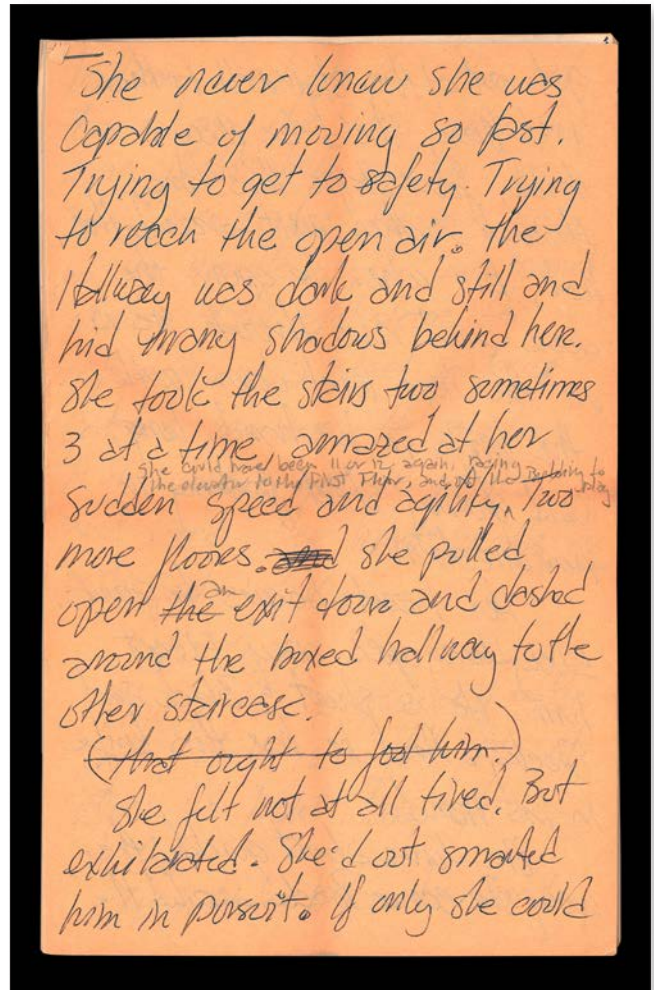 She never knew she was
capable of moving so fast.
Trying to get to safety. Trying
to reach the open air. The
Hallway was dark and still and
hid many shadows behind her.
She took the stairs two sometimes
3 at a time, amazed at her
She could have been 11 or 12 again, racing
the elevator to the First Floor, and out the Building to
play
sudden speed and agility. Two
more floors. and she pulled
an
open the exit door and dashed
around the boxed hallway to the
other staircase.
(that ought to fool him.)
She felt not at all tired. But
exhilarated. She'd out smarted
him in pursuit. If only she could